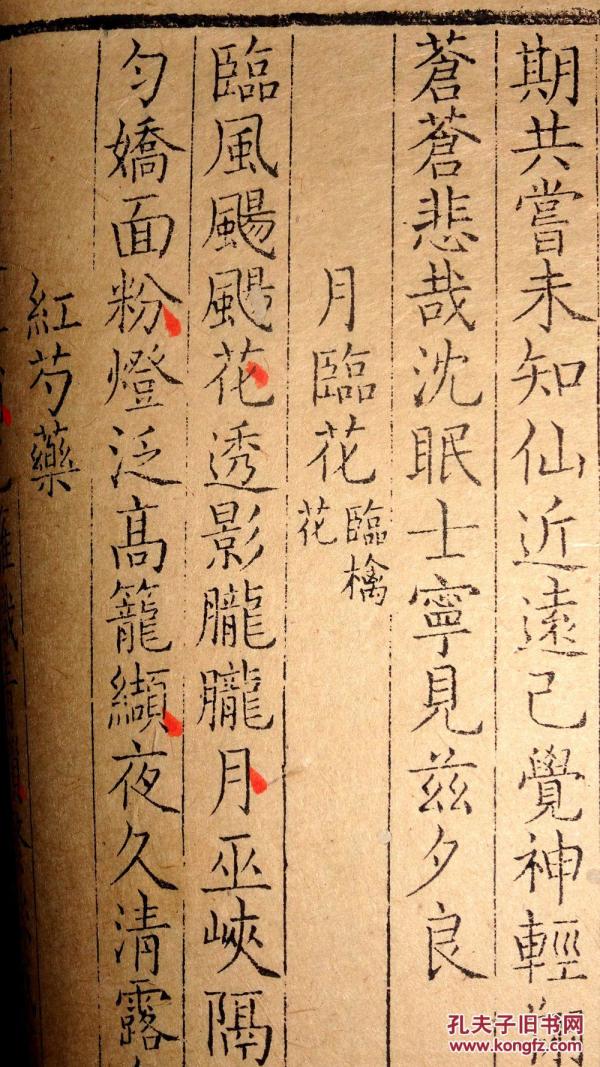 期共嘗未知仙近遠己覺神輕
蒼蒼悲哉沈眠士寧見茲夕良
月臨花臨檎花
臨風颺颺花透影朧朧月巫峽隔
勻嬌面粉燈泛髙籠纈夜久清露
紅芍藥
孔夫子旧书网
www.kongfz.com